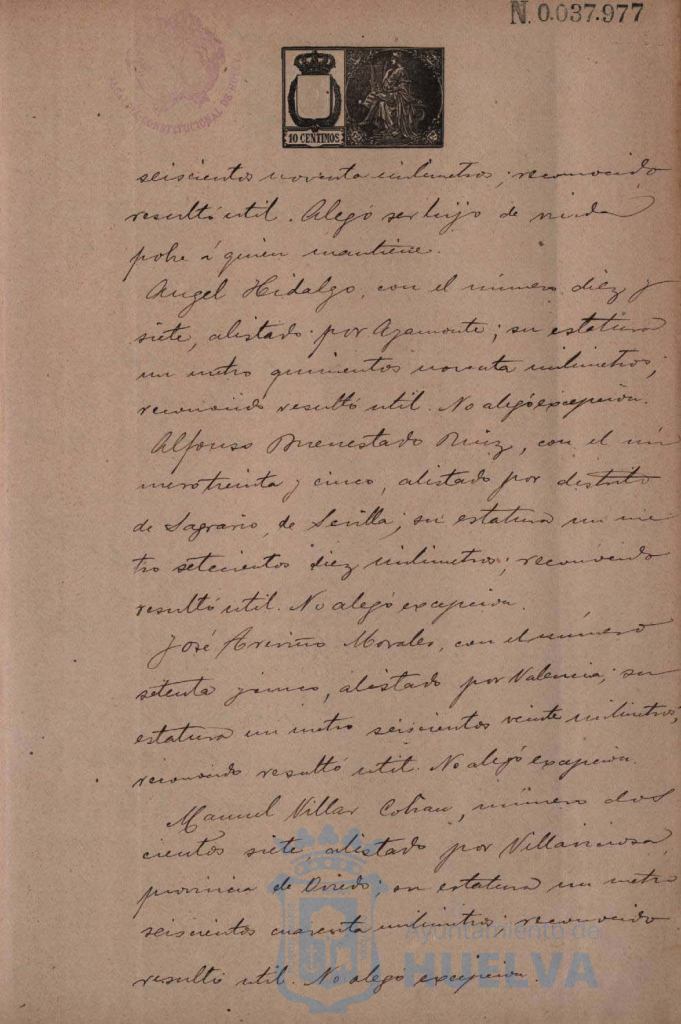 N. 0.037.977
CONSTITUCIONAL DE
10 CENTIMOS
seiscientos noventa milimetros; reconocido
resultó util. Alegó ser hijo de viuda
pobre á quien mantiene.
Angel Hidalgo, con el número diez y
siete, alistado por Ayamonte; su estatura
un metro quinientos noventa milimetros;
reconocido resultó util. No alegó excepcion.
Alfonso Buenestado Ruiz, con el nú
mero treinta y cinco, alistado por distrito
de Sagrario, de Sevilla; su estatura un me
tro setecientos diez milimetros; reconocido
resultó util. No alegó excepcion.
José Morales, con el número
setenta y cinco, alistado por Valencia; su
estatura un metro seiscientos veinte milimetros;
reconocido resultó util. No alegó excepcion.
Manuel Villar, número dos
cientos siete alistado por Villaviciosa,
provincia de Oviedo; su estatura un metro
seiscientos cuarenta milimetros; reconocido
resultó util. No alegó excepcion.
Ayuntamiento de
HUELVA